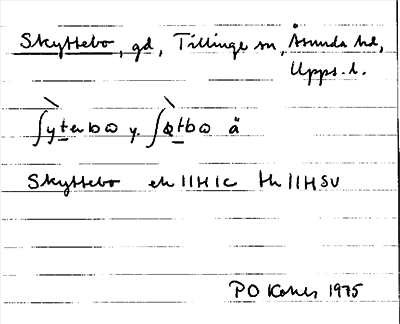 Skyttebo, gd, Tillinge sn, Åsunda hd,
Upps. l.
ʃy̠tebω y. ʃøt̠bω ä
Skyttebo ek 11H1c th 11HSV
PO 1975